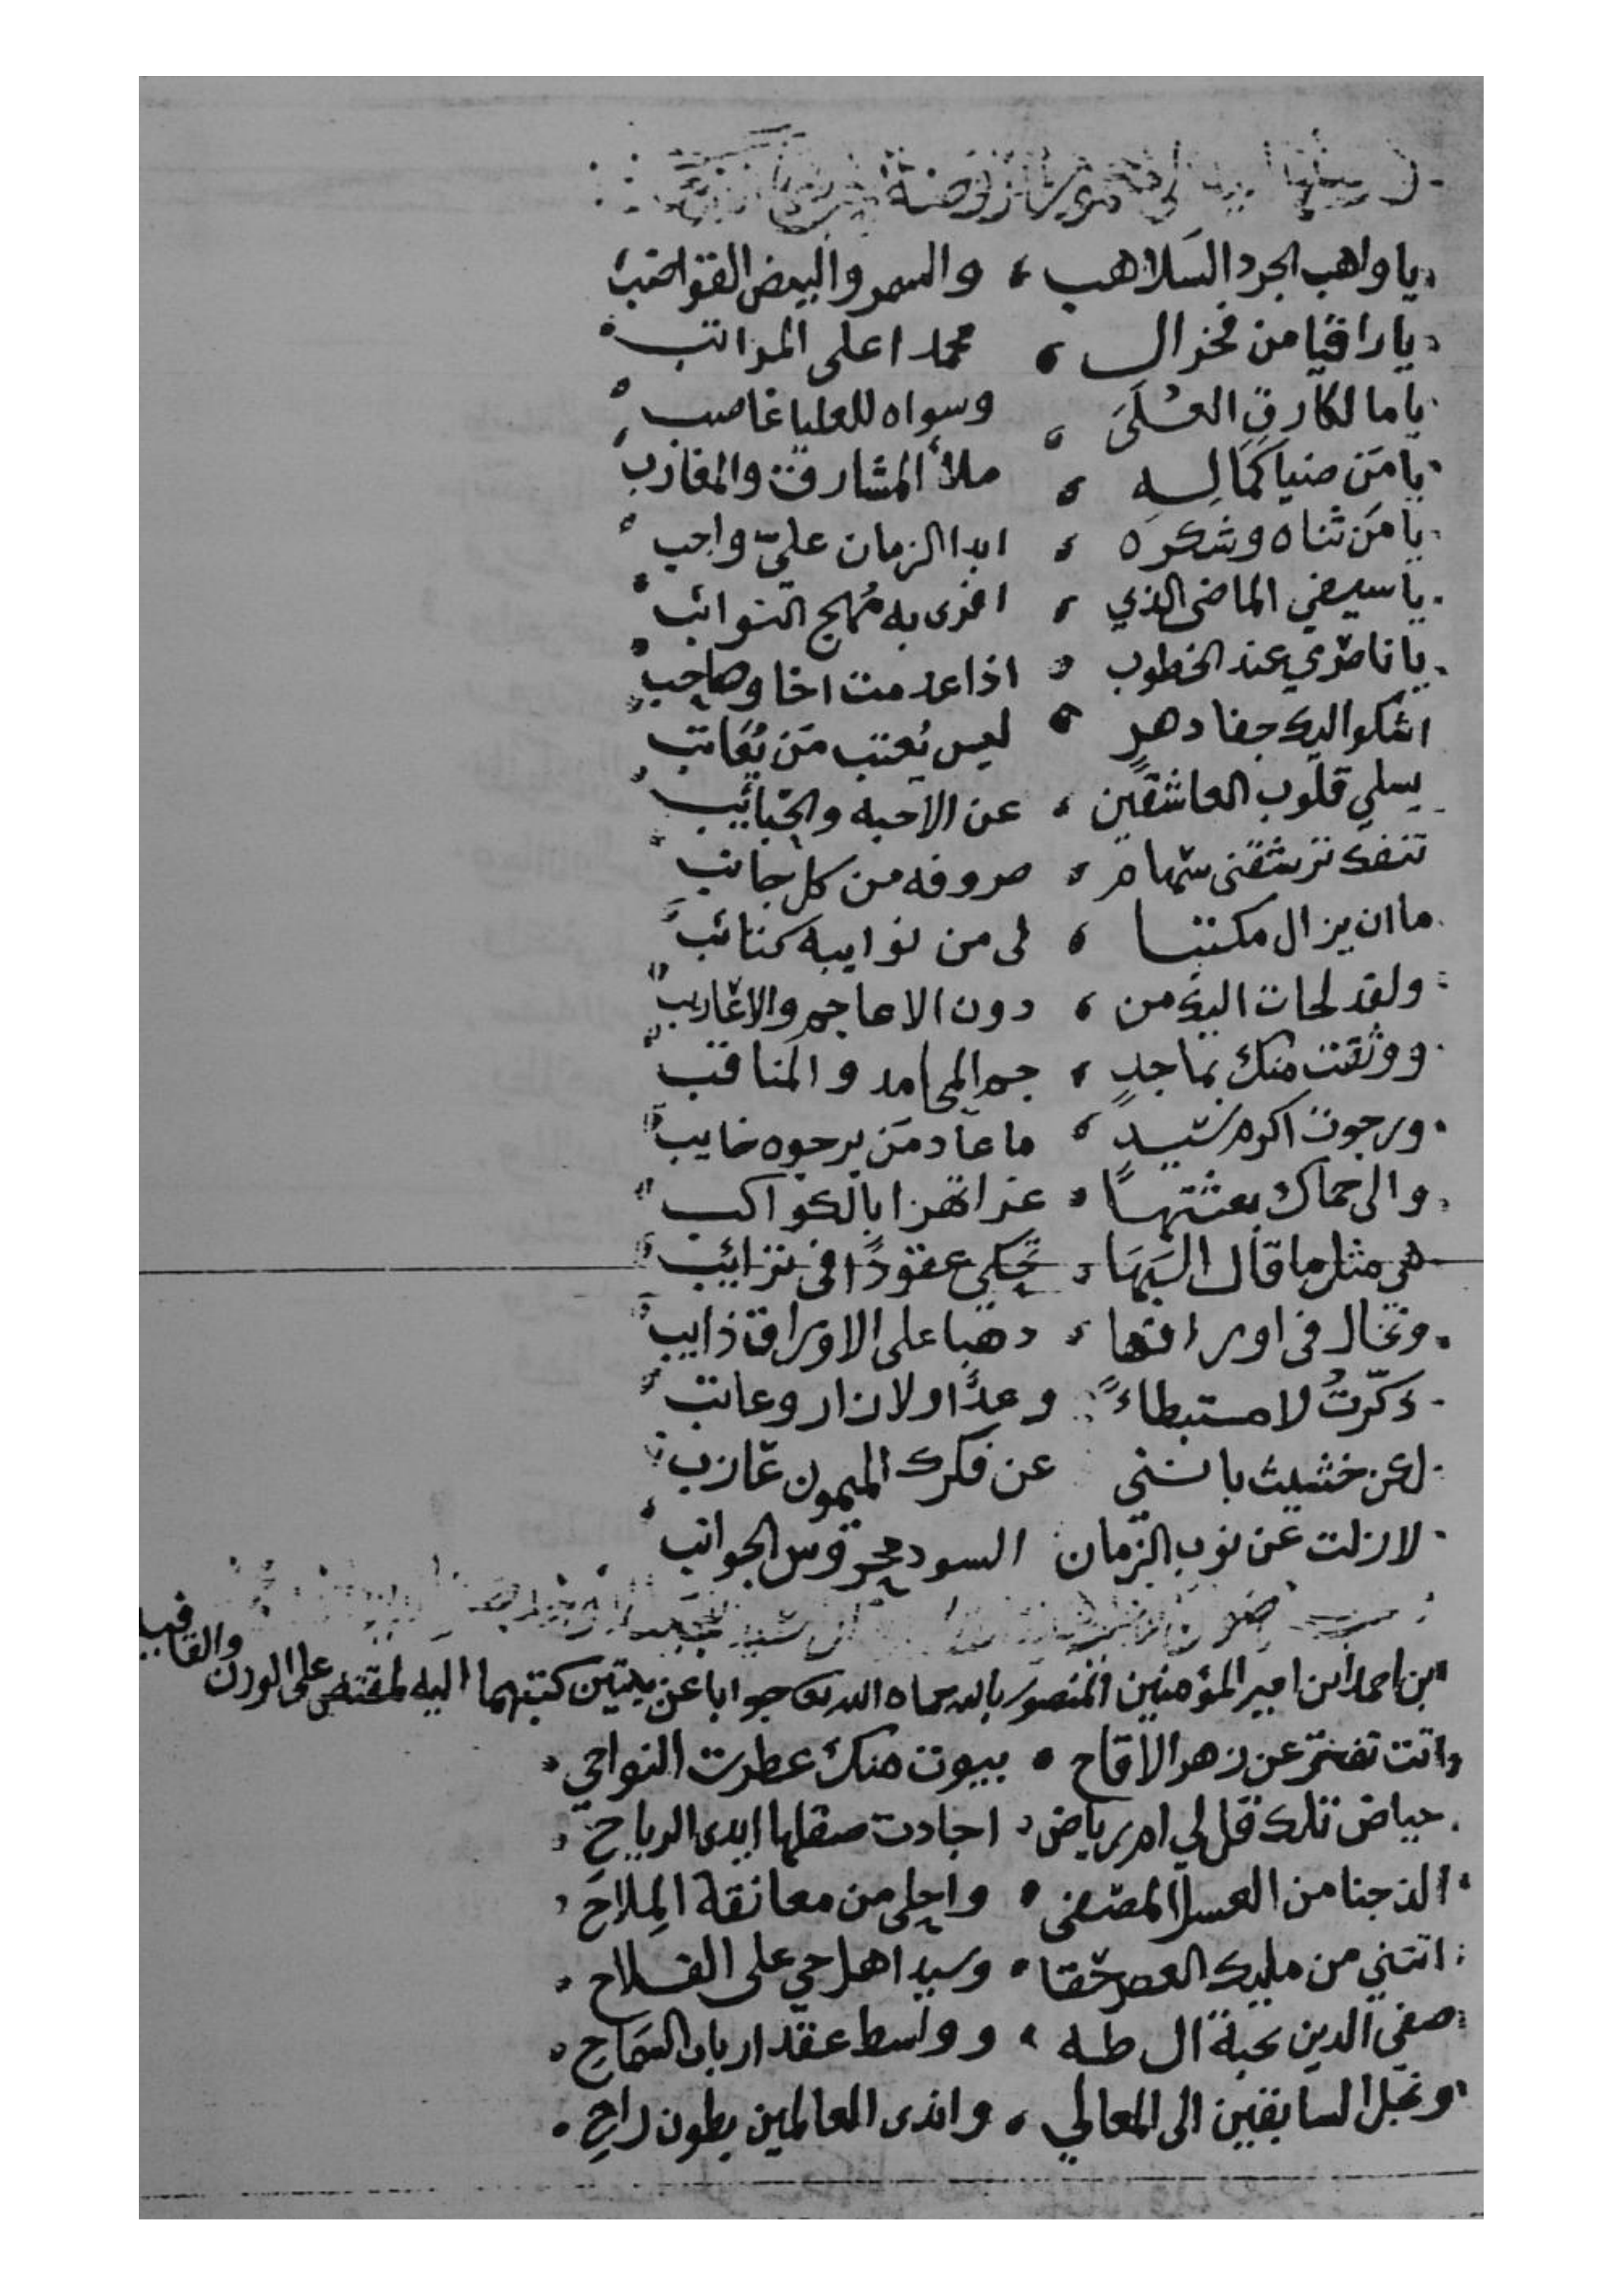 يا واهب الجرد السلاهب ، والسمر والبيض القواضب
يا راقيا من فخر ال ، محمد اعلى المراتب
يا مالكا رق العلى ، وسواه للعليا غاصب
يا من ضيا كماله ، ملأ المشارق والمغارب
يا من ثناه وشكره ، ابدا الزمان عليّ واجب
يا سيفي الماضي الذي ، افرى به مُهج النوائب
يا ناصري عند الخطوب ، اذا عدمت اخا وصاحب
اشكو اليك جفا دهرٍ ، ليس يُعتب مَن يُعَاتب
يسلي قلوب العاشقين ، عن الاحبه والحبائب
تنفك ترشقني سهام ، صروفه من كل جانب
ما ان يزال مكتبا ، لى من نوايبه كتائب
ولقد لجات اليك من ، دون الاعاجم والاعارب
ووثقت منك بماجدٍ ، جم المحامد والمناقب
ورجوت اكرم سيدٍ ، ما عاد مَن يرجوه خايب
والى حماك بعثتها ، غرا تهزا بالكواكب
هي مثل ما قال السها ، تحكي عقودًا في ترائب
وتخال في اوراقها ، ذهبا على الاوراق ذايب
ذكّرتُ لا مستبطاءً وعدًا ولا زار وعاتب
لكن خشيت بانني عن فكرك الميمون عازب
لا زلت عن نوب الزمان السود محروس الجوانب
ابن احمد ابن امير المؤمنين المنصور بالله حماه الله تع جوابا عن بيتين كتبتهما اليه لمقتضى على الوزن والقافيه
اتت تفتر عن زهر الاقاح ، بيوت منك عطرت النواحي
حياض تلك قل لي ام رياض ، اجادت صقلها ايدى الرياح
الذ جنا من العسل المصفى ، واحلى من معانقة المِلاح
اتتني من مليك العصر حقا ، وسيد اهل حي على الفلاح
صفي الدين نخبة ال طه ، وواسط عقد ارباب السماح
ونجل السابقين الى المعالي ، واندى العالمين بطون راح